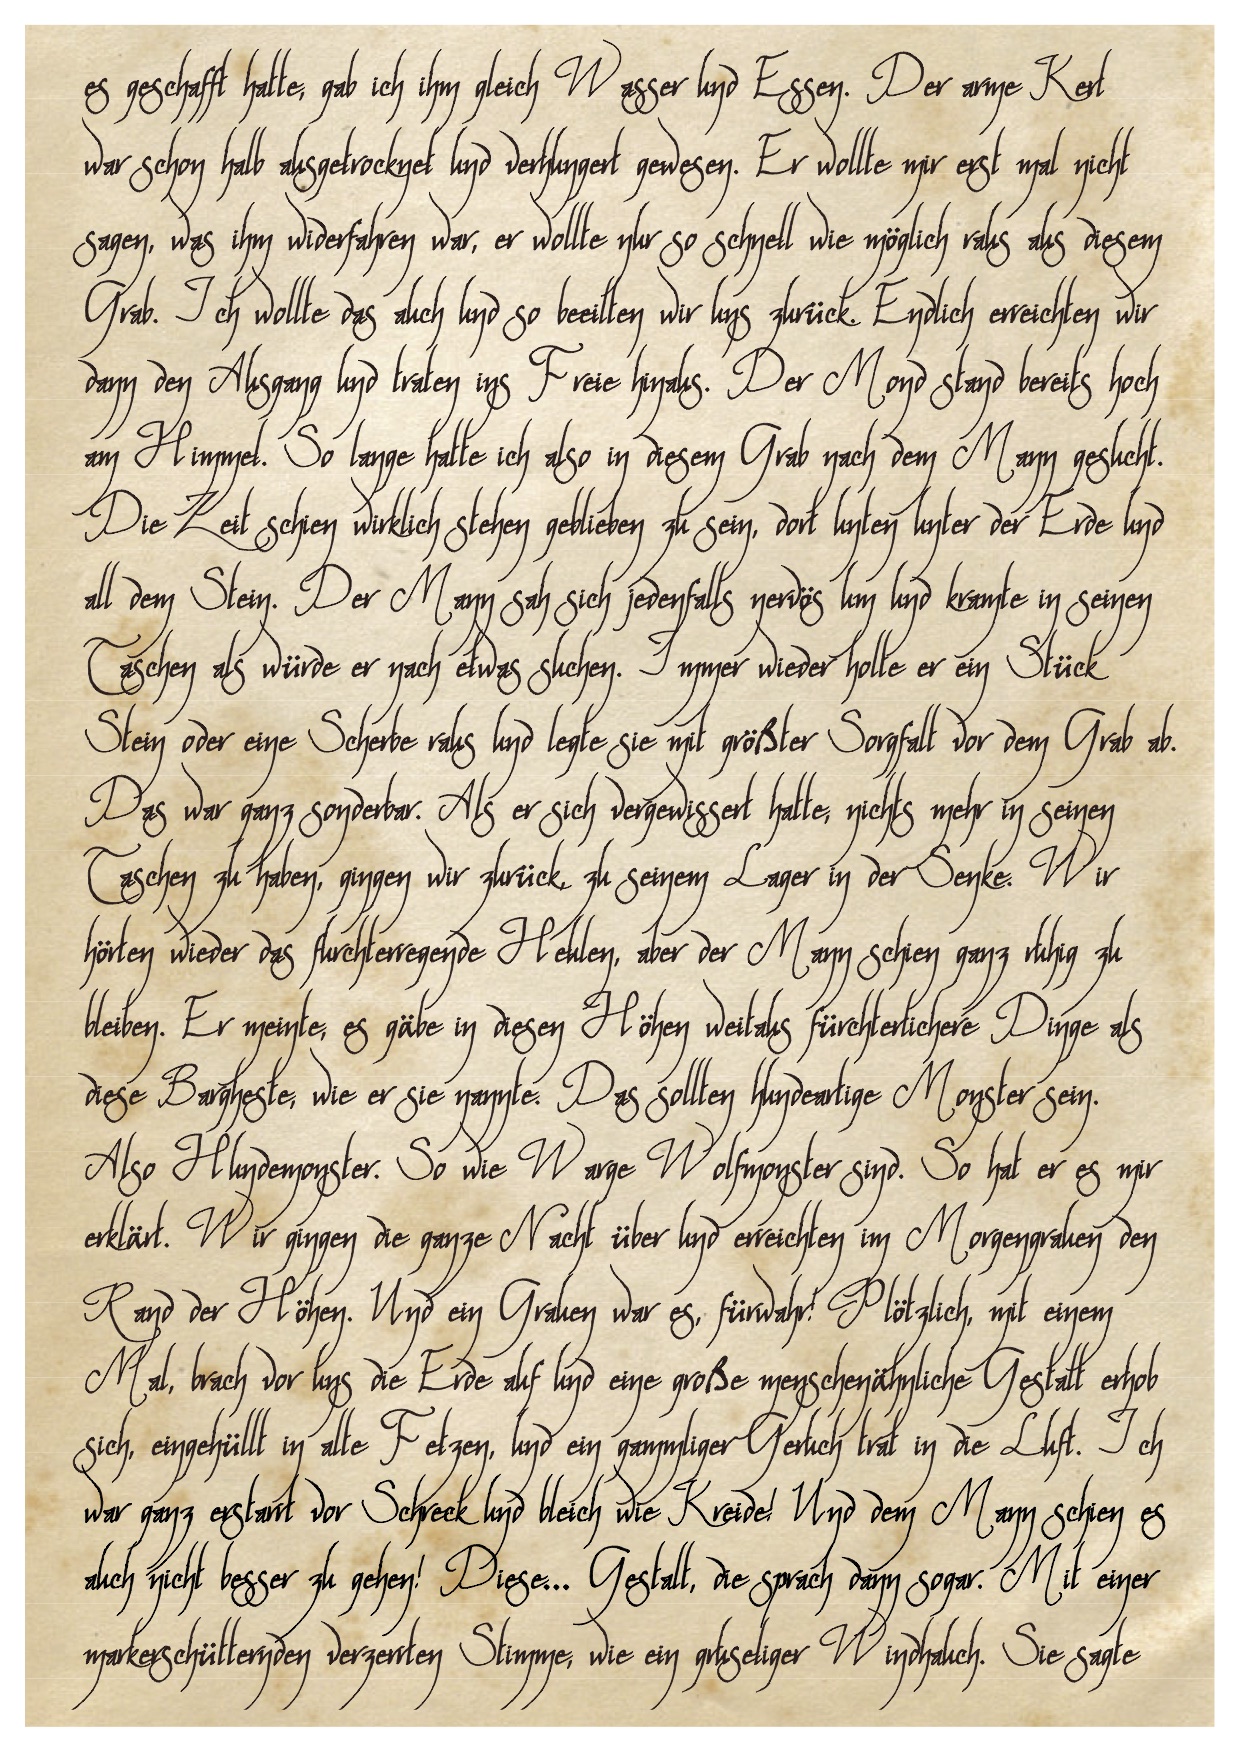 es geschafft hatte, gab ich ihm gleich Wasser und Essen. Der arme Kerl
war schon halb ausgetrocknet und verhungert gewesen. Er wollte mir erst mal nicht
sagen, was ihm widerfahren war, er wollte nur so schnell wie möglich raus aus diesem
Grab. Ich wollte das auch und so beeilten wir uns zurück. Endlich erreichten wir
dann den Ausgang und traten ins Freie hinaus. Der Mond stand bereits hoch
am Himmel. So lange hatte ich also in diesem Grab nach dem Mann gesucht.
Die Zeit schien wirklich stehen geblieben zu sein, dort unten unter der Erde und
all dem Stein. Der Mann sah sich jedenfalls nervös um und kramte in seinen
Taschen als würde er nach etwas suchen. Immer wieder holte er ein Stück
Stein oder eine Scherbe raus und legte sie mit größter Sorgfalt vor dem Grab ab.
Das war ganz sonderbar. Als er sich vergewissert hatte, nichts mehr in seinen
Taschen zu haben, gingen wir zurück, zu seinem Lager in der Senke. Wir
hörten wieder das furchterregende Heulen, aber der Mann schien ganz ruhig zu
bleiben. Er meinte, es gäbe in diesen Höhen weitaus fürchterlichere Dinge als
diese Bargheste, wie er sie nannte. Das sollten hundeartige Monster sein.
Also Hundemonster. So wie Warge Wolfmonster sind. So hat er es mir
erklärt. Wir gingen die ganze Nacht über und erreichten im Morgengrauen den
Rand der Höhen. Und ein Grauen war es, fürwahr! Plötzlich, mit einem
Mal, brach vor uns die Erde auf und eine große menschenähnliche Gestalt erhob
sich, eingehüllt in alte Fetzen, und ein gammliger Geruch trat in die Luft. Ich
war ganz erstarrt vor Schreck und bleich wie Kreide! Und dem Mann schien es
auch nicht besser zu gehen! Diese... Gestalt, die sprach dann sogar. Mit einer
markerschütternden verzerrten Stimme, wie ein gruseliger Windhauch. Sie sagte